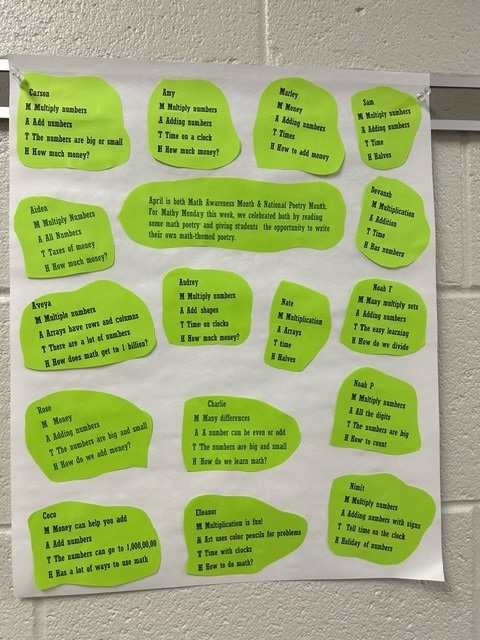 Carson
M Multiply numbers
A Add numbers
T The numbers are big or small
H How much money?
Amy
M Multiply numbers
A Adding numbers
T Time on a clock
H How much money?
Marley
M Money
A Adding numbers
T Times
H How to add money
Sam
M Multiply numbers
A Adding numbers
T Time
H Halves
Aiden
M Multiply Numbers
A All Numbers
T Taxes of money
H How much money?
April is both Math Awareness Month & National Poetry Month.
For Mathy Monday this week, we celebrated both by reading
some math poetry and giving students the opportunity to write
their own math-themed poetry.
Devansh
M Multiplication
A Addition
T Time
H Has numbers
Aveya
M Multiple numbers
A Arrays have rows and columns
T There are a lot of numbers
H How does math get to 1 billion?
Audrey
M Multiply numbers
A Add shapes
T Time on clocks
H How much money?
Nate
M Multiplication
A Arrays
T time
H Halves
Noah F
M Many multiply sets
A Adding numbers
T The easy learning
H How do we divide
Rose
M Money
A Adding numbers
T The numbers are big and small
H How do we add money?
Charlie
M Many differences
A A number can be even or odd
T The numbers are big and small
H How do we learn math?
Noah P
M Multiply numbers
A All the digits
T The numbers are big
H How to count
Coco
M Money can help you add
A Add numbers
T The numbers can go to 1,000,00,00
H Has a lot of ways to use math
Eleanor
M Multiplication is fun!
A Art uses color pencils for problems
T Time with clocks
H How to do math?
Nimit
M Multiply numbers
A Adding numbers with signs
T Tell time on the clock
H Holiday of numbers